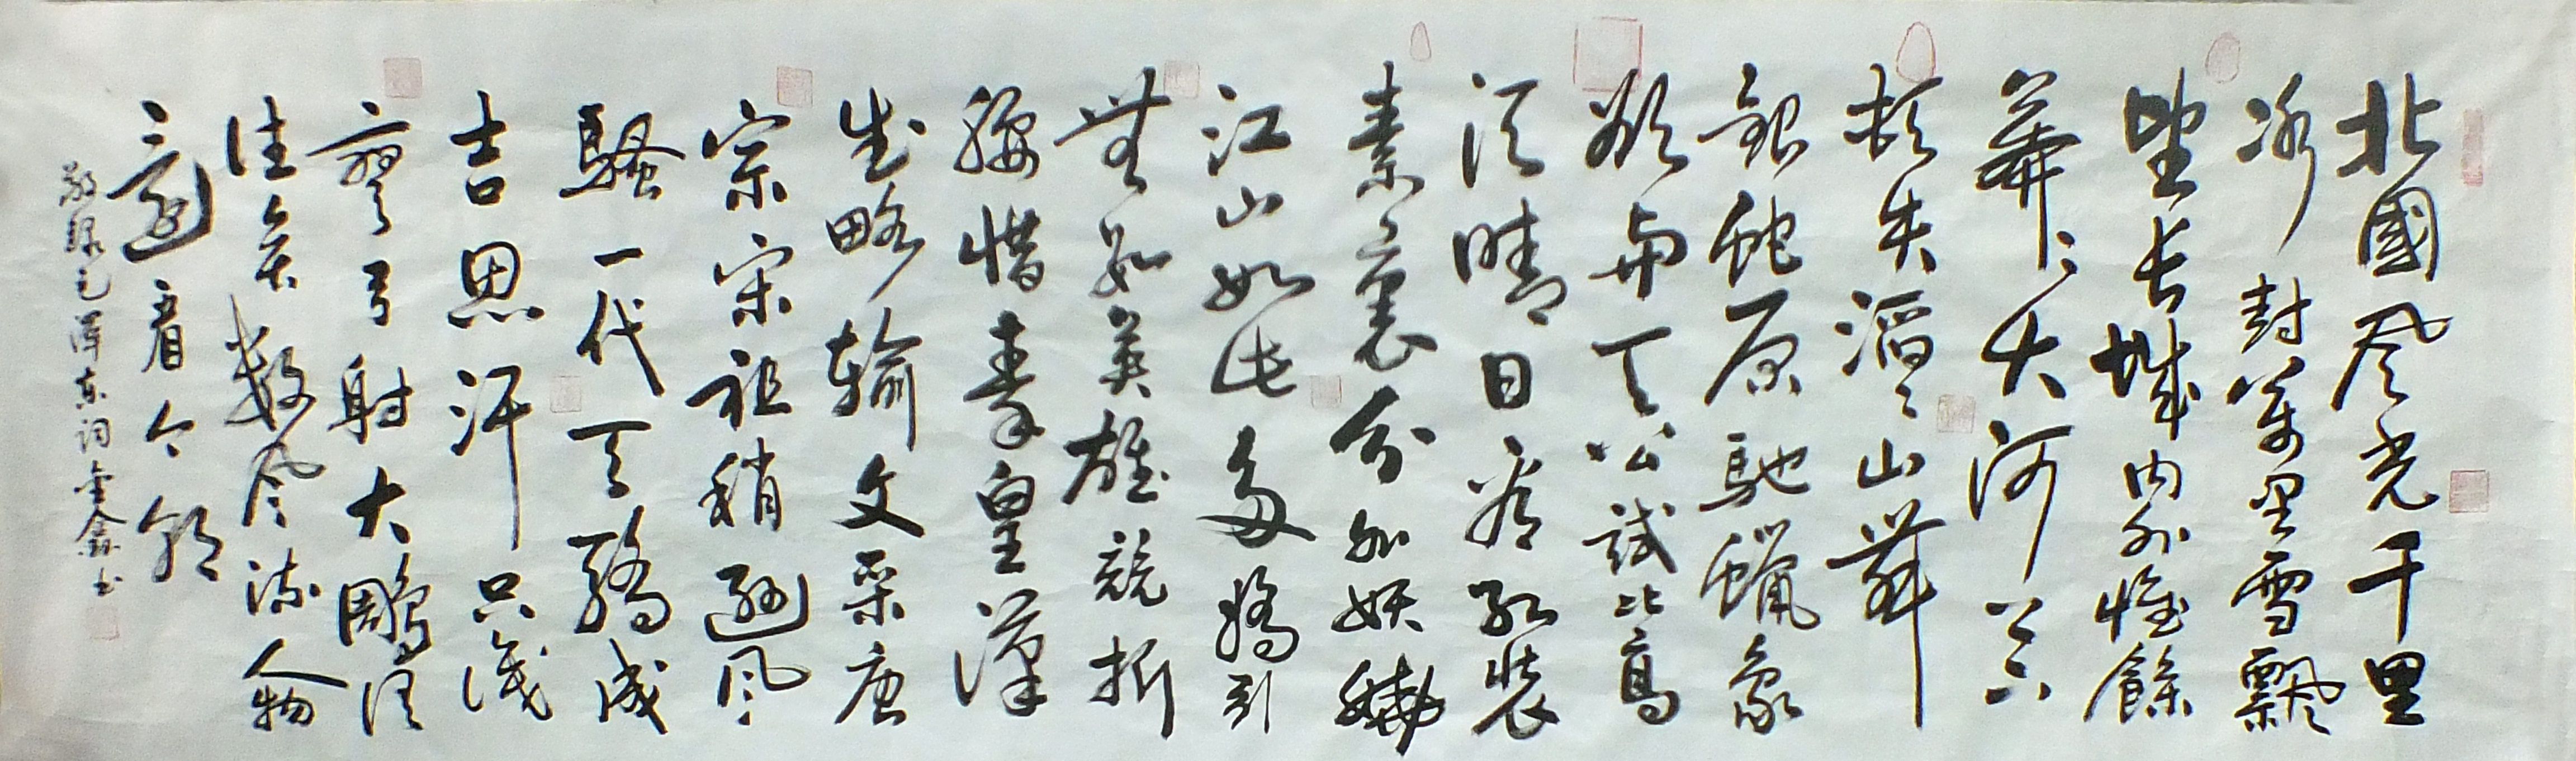 北國风光千里
冰封萬里雪飄
望长城内外惟餘
莽〻大河上下
顿失滔〻山舞
銀蛇原馳蠟象
欲与天公試比高
须晴日看红装
素裹分外妖娆
江山如此多嬌引
無数英雄競折
腰惜秦皇漢
武略输文采唐
宗宋祖稍逊风
騷一代天驕成
吉思汗只識
彎弓射大鵰俱
往矣數风流人物
還看今朝
敬録毛澤东词金鑫书